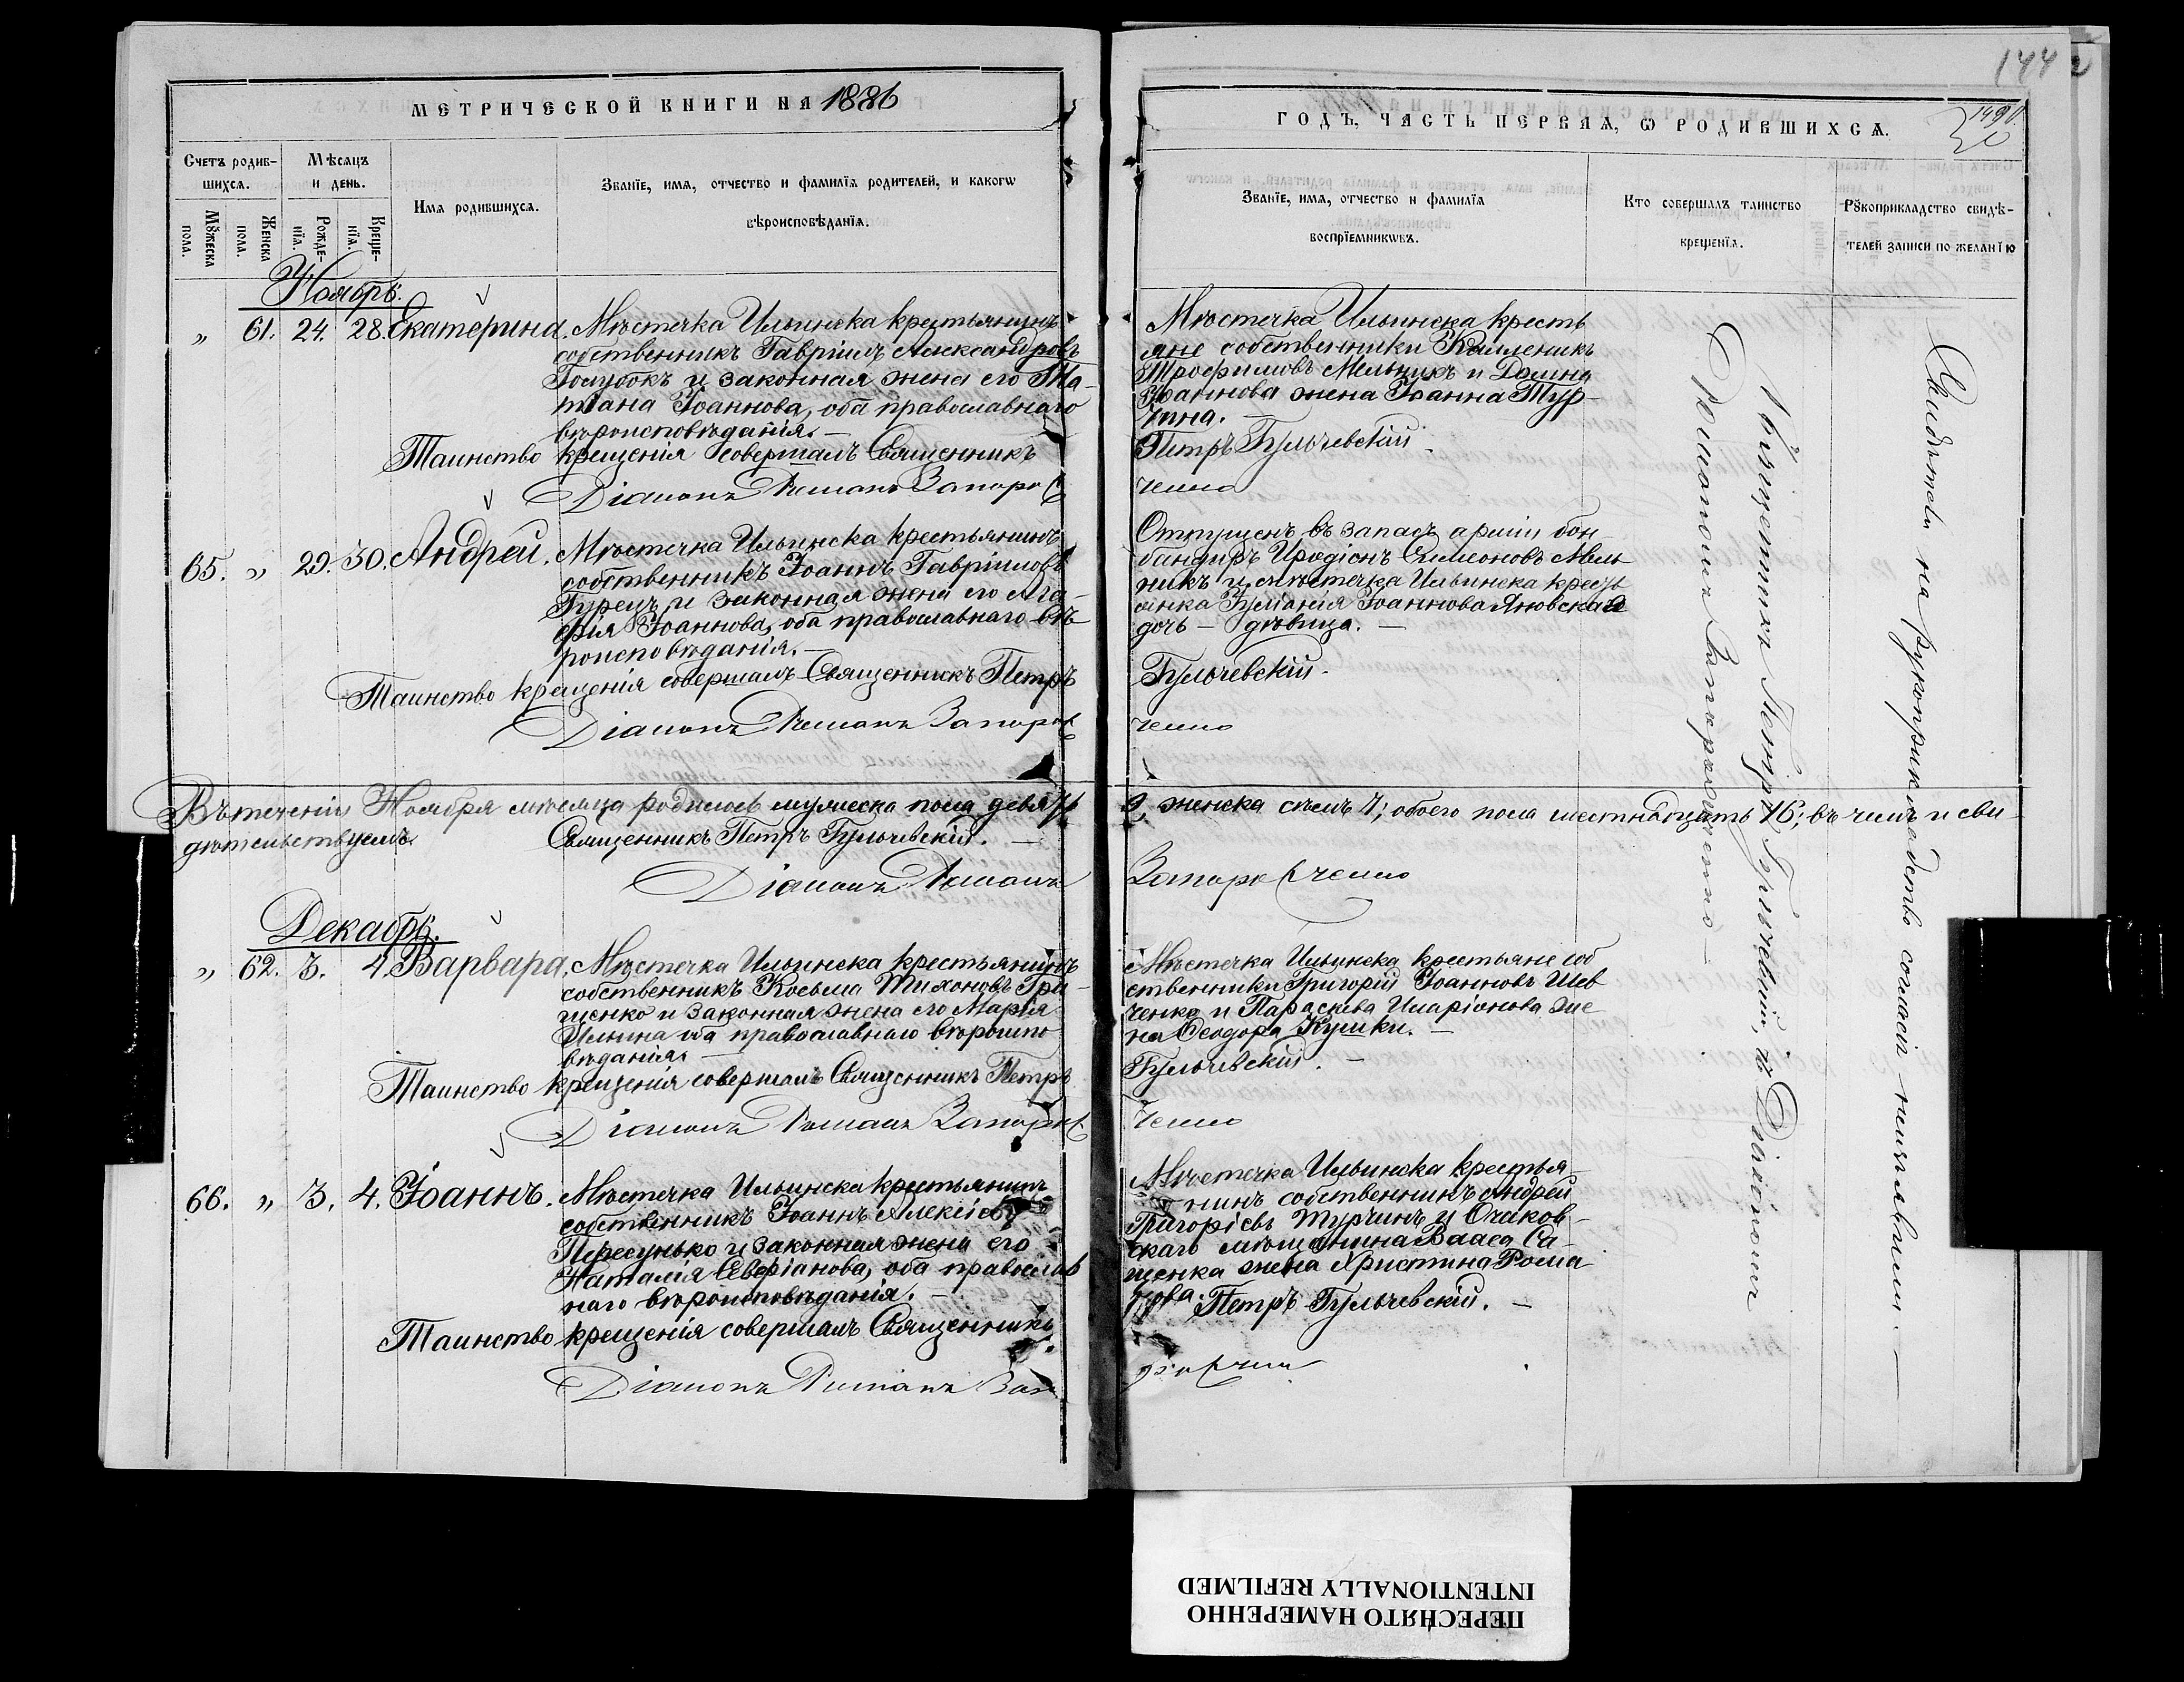 144
1490.
МЕТРИЧЕСКОЙ КНИГИ НА 1886
ГОДЪ, ЧАСТЬ ПЕРВАЯ, Ѡ РОДИВШИХСѦ.
Счетъ родив-
шихсѧ.
Мꙋжеска
пола.
Женска
пола.
Мѣсѧцъ
и день.
Рожде-
нїѧ.
Креще-
нїѧ.
Имѧ родившихсѧ.
Званїе, имѧ, отчество и фамилїѧ родителей, и какогѡ
вѣроисповѣданїѧ.
Званїе, имѧ, отчество и фамилїѧ
воспрїемникѡвъ.
Кто совершалъ таинство
крещенїѧ.
Рꙋкоприкладство свидѣ-
телей записи по желанїю
Ноябрь.
„ 61. 24. 28. Екатерина. Мѣстечка Ильинска крестьянинъ
собственникъ Гавріилъ Александровъ
Голубокъ и законная жена его Та-
тіана Іоаннова, оба православнаго
вѣроисповѣданія. —
Таинство крещенія совершалъ Священникъ
Діаконъ Романъ Запорос
Мѣстечка Ильинска кресть
яне собственники Каленикъ
Трофимовъ Мельникъ и Домна
Іоаннова жена Іоанна Тур-
чина.
Петръ Бульчевскій.
ченко
65. „ 29. 30. Андрей. Мѣстечка Ильинска крестьянинъ
собственникъ Іоаннъ Гавріиловъ
Гурецъ и законная жена его Ага-
фія Іоаннова, оба православнаго вѣ-
роисповѣданія. —
Таинство крещенія совершалъ Священникъ Петръ
Діаконъ Романъ Запорос
Отпущенъ въ запасъ арміи бом
бандиръ Иродіонъ Симеоновъ Мель
никъ и мѣстечка Ильинска кресть
янка Іуліанія Іоаннова Яновская
дочь — дѣвица. —
Бульчевскій.
ченко
Въ теченіи Ноября мѣсяца родилось мужеска пола девять
9, женска семь 7; обоего пола шестнадцать 16; въ чемъ и сви-
дѣтельствуемъ.
Священникъ Петръ Бульчевскій. —
Діаконъ Романъ
Запоросченко
Декабрь.
„ 62. 3. 4. Варвара. Мѣстечка Ильинска крестьянинъ
собственникъ Косьма Тихоновъ Гри-
щенко и законная жена его Марія
Ильина оба православнаго вѣроиспо
вѣданія. —
Таинство крещенія совершалъ Священникъ Петръ
Діаконъ Романъ Запорос
Мѣстечка Ильинска крестьяне соб
ственники Григорій Іоанновъ Шев
ченко и Параскева Иларіонова же
на Ѳеодора Кушки. —
Бульчевскій. —
ченко
66. „ 3. 4. Іоаннъ. Мѣстечка Ильинска крестьянинъ
собственникъ Іоаннъ Алексіевъ
Пересунько и законная жена его
Наталія Северіанова, оба православ
наго вѣроисповѣданія. —
Таинство крещенія совершалъ Священникъ
Діаконъ Романъ Запо
Мѣстечка Ильинска крестья-
нинъ собственникъ Андрей
Григорьевъ Турчинъ и Очаков-
скаго мѣщанина Власа Са-
щенка жена Христина Рома
нова. Петръ Бульчевскій. —
росчен
Священникъ Петръ Бульчевскій, и Діаконъ
Романъ Запоросченко —
Свидѣтели на рукоприкладство согласія неизъявили. —
ПЕРЕСНЯТО НАМЕРЕННО
INTENTIONALLY REFILMED